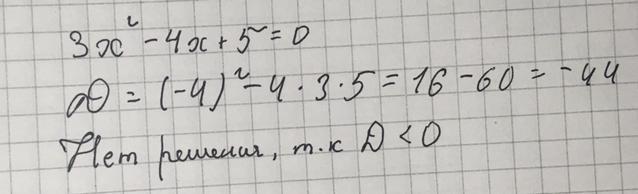 3x² - 4x + 5 = 0
D = (-4)² - 4 · 3 · 5 = 16 - 60 = -44
Нет решения, т.к D < 0